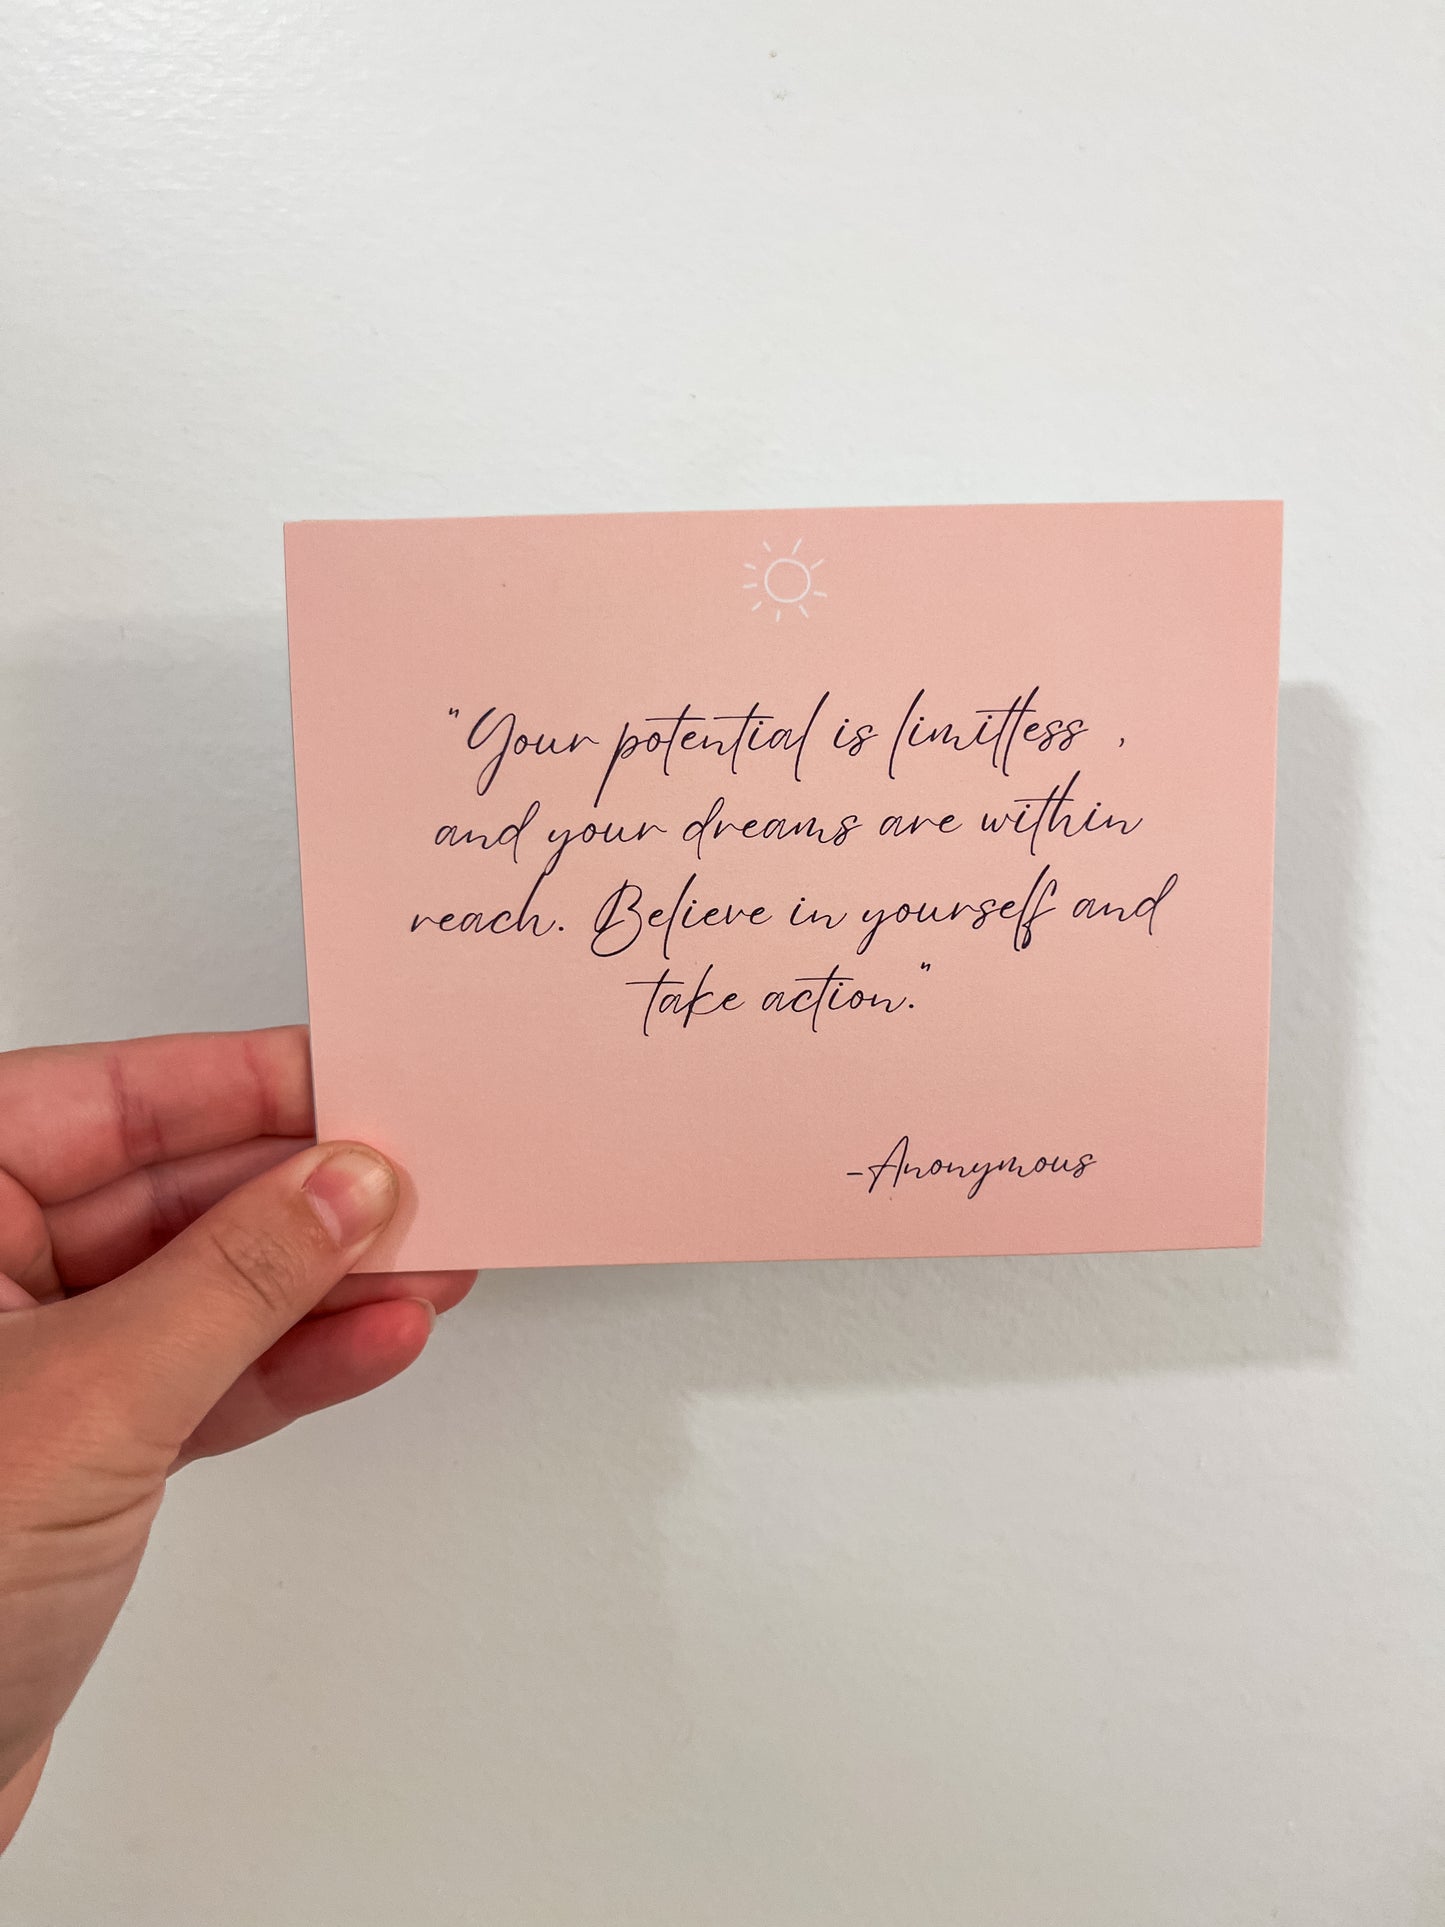 "Your potential is limitless ,
and your dreams are within
reach. Believe in yourself and
take action."
-Anonymous